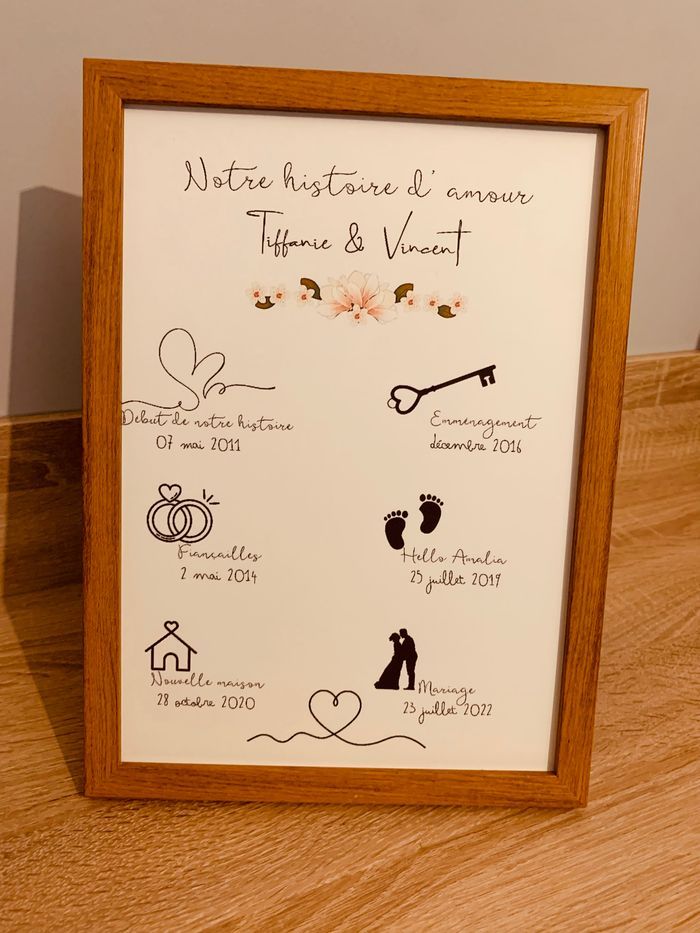 Notre histoire d' amour
Tiffanie & Vincent
Début de notre histoire
07 mai 2011
Emménagement
décembre 2016
Fiançailles
2 mai 2014
Hello Amalia
25 juillet 2019
Nouvelle maison
28 octobre 2020
Mariage
23 juillet 2022